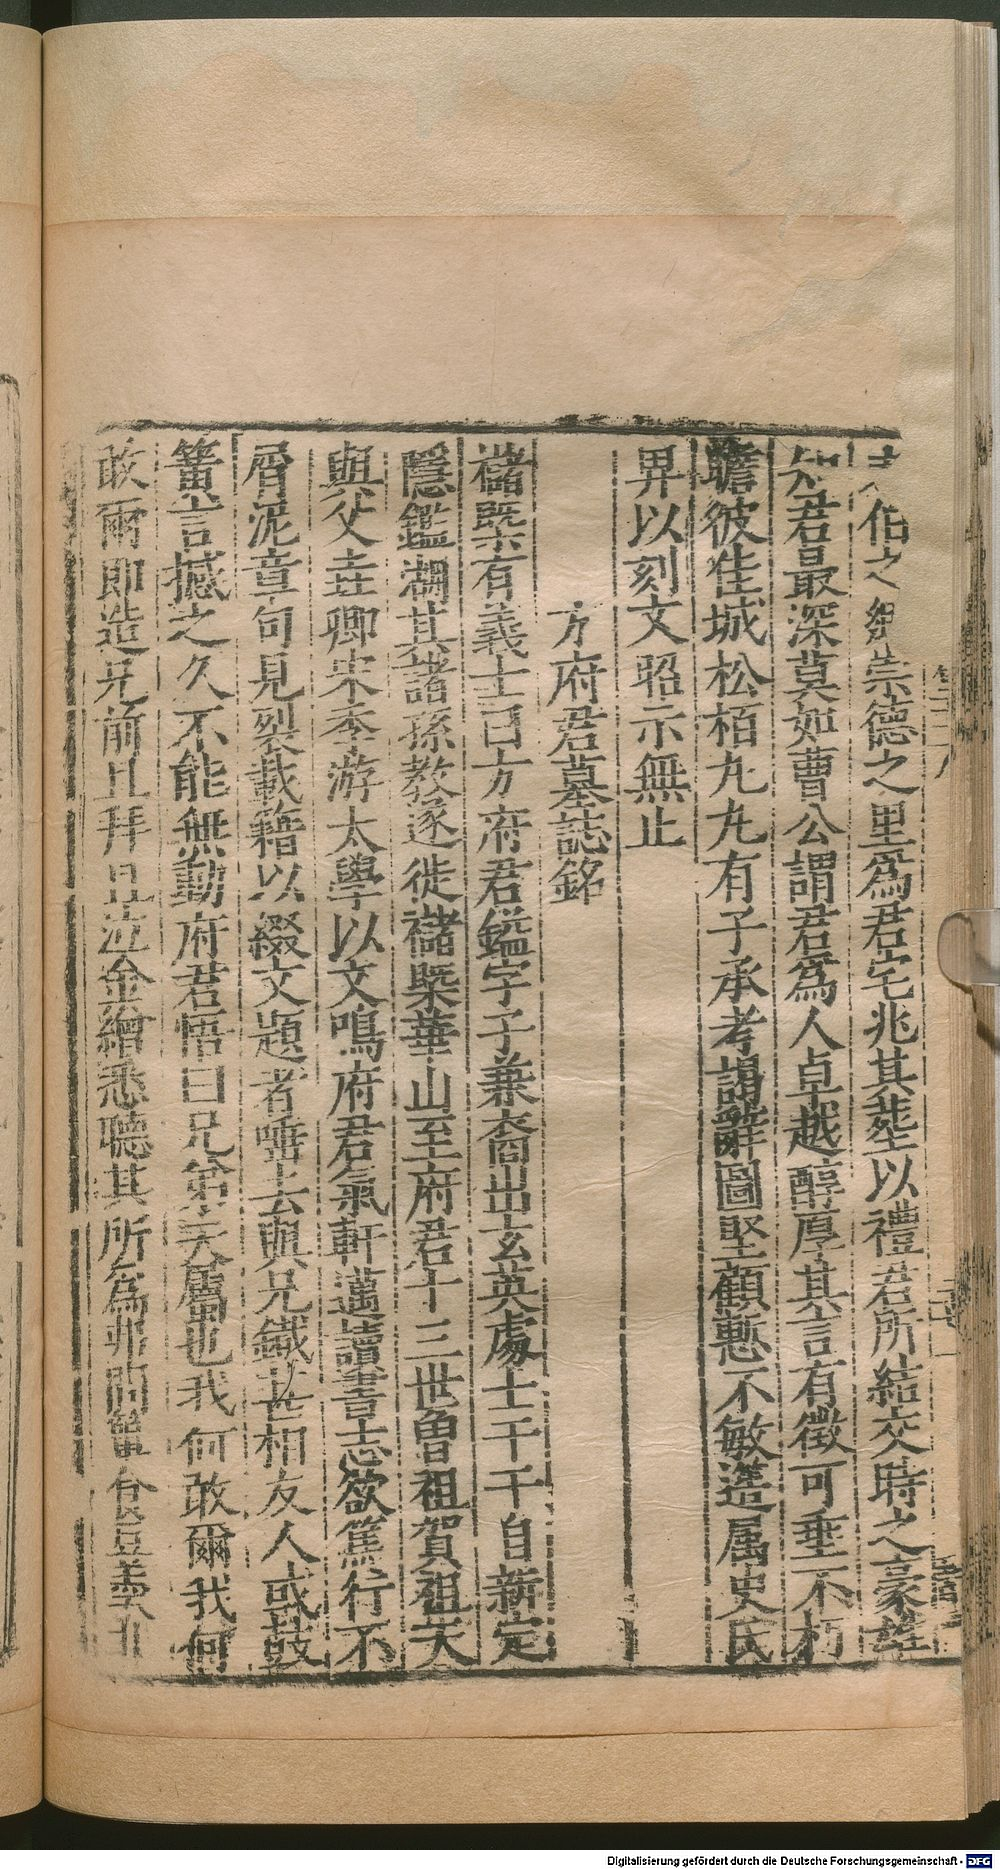 伯之 崇德之里為君宅兆其塟以禮君所結交時之豪
知君最深莫如曹公謂君為人卓越醇厚其言有徵可垂不朽
瞻彼佳城松栢丸丸有子承孝謁辭圖堅顧慙不敏濫属史氏
畀以刻文昭示無止
方府君墓誌銘
禇槩有義士曰方府君鎰字子兼裔出玄英處士干干自新定
隱鑑湖其諸孫教遂徙禇槩華山至府君十三世曾祖賀祖天
與父圭卿宋季游太學以文鳴府君氣軒邁讀書志欲篤行不
屑泥章句見裂載籍以綴文題者唾去與兄鐵甚相友人或鼓
簧言撼之久不能無動府君悟曰兄弟天屬也我何敢爾我何
敢爾即造兄前且拜且泣金繒悉聽其所為弗問嘗食豆羮
Digitalisierung gefördert durch die Deutsche Forschungsgemeinschaft - DFG